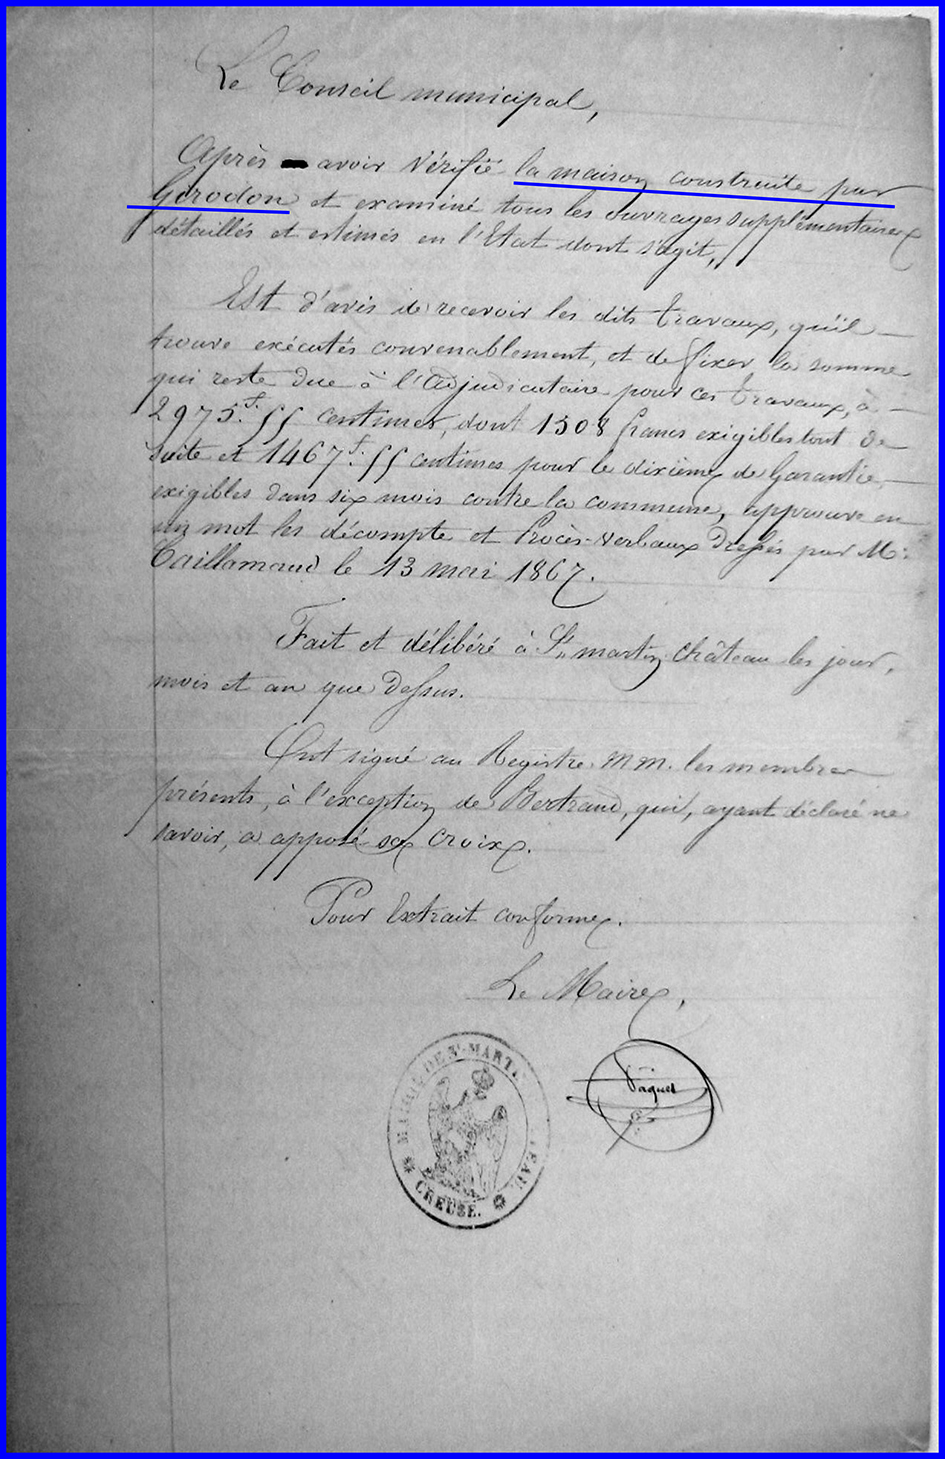 Le Conseil municipal,
Après avoir vérifié la maison construite par
Gorodon et examiné tous les ouvrages supplémentaires
détaillés et estimés en l'Etat dont s'agit,
Est d'avis de recevoir les dits travaux, qu'il
trouve exécutés convenablement, et de fixer la somme
qui reste due à l'adjudicataire pour ces travaux, à
2975f. 55 centimes, dont 1508 francs exigibles tout de
suite et 1467f. 55 centimes pour le dixième de garantie,
exigibles dans six mois contre la commune, approuve en
un mot les décompte et Procès-verbaux dressés par Mr.
Caillamaud le 13 mai 1867.
Fait et délibéré à St. martin château les jour,
mois et an que dessus.
Ont signé au Registre MM. les membres
présents, à l'exception de Bertrand, qui, ayant déclaré ne
savoir, a apposé sa croix.
Pour Extrait conforme.
Le Maire,
MAIRIE DE St. MARTIN EAU
CREUSE.